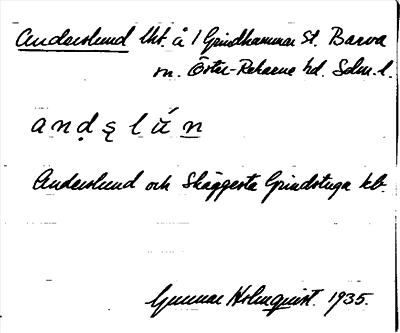 Anderslund lht. å 1 Grindhammar St. Barva
sn. Öster-Rekarne hd. Sdm. l.
a n ḍ ę l ú n
Anderslund och Skäggesta Grindstuga kb.
Gunnar Holmquist. 1935.